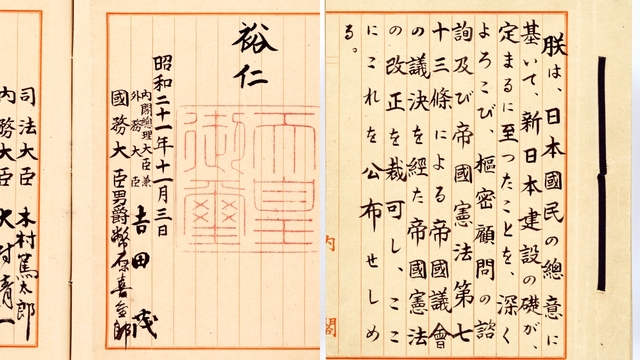 朕は、日本國民の總意に
基いて、新日本建設の礎が、
定まるに至つたことを、深く
よろこび、樞密顧問の諮
詢及び帝國憲法第七
十三條による帝國議會
の議決を経た帝國憲法
の改正を裁可し、ここ
にこれを公布せしめ
る。
内閣
裕仁
天皇
御璽
昭和二十一年十一月三日
内閣總理大臣兼
外務大臣 吉田茂
國務大臣男爵幣原喜重郎
司法大臣 木村篤太郎
内務大臣 大村清一